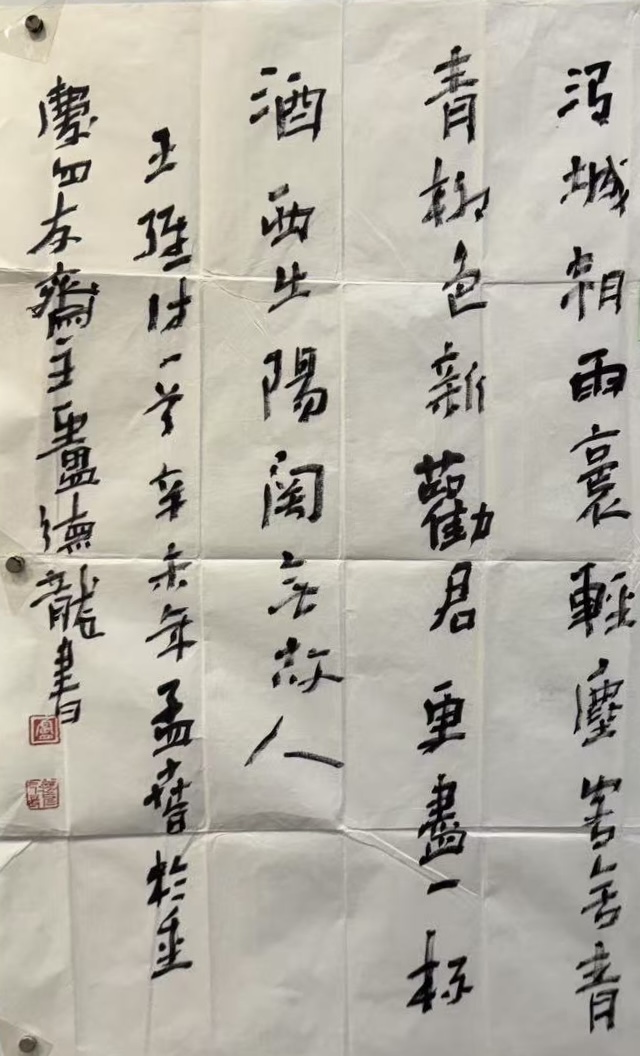 渭城朝雨裛輕塵客舍青
青柳色新勸君更盡一杯
酒西出陽關無故人
王維詩一首辛未年孟春於重
慶四友齋主盧德龍書
盧